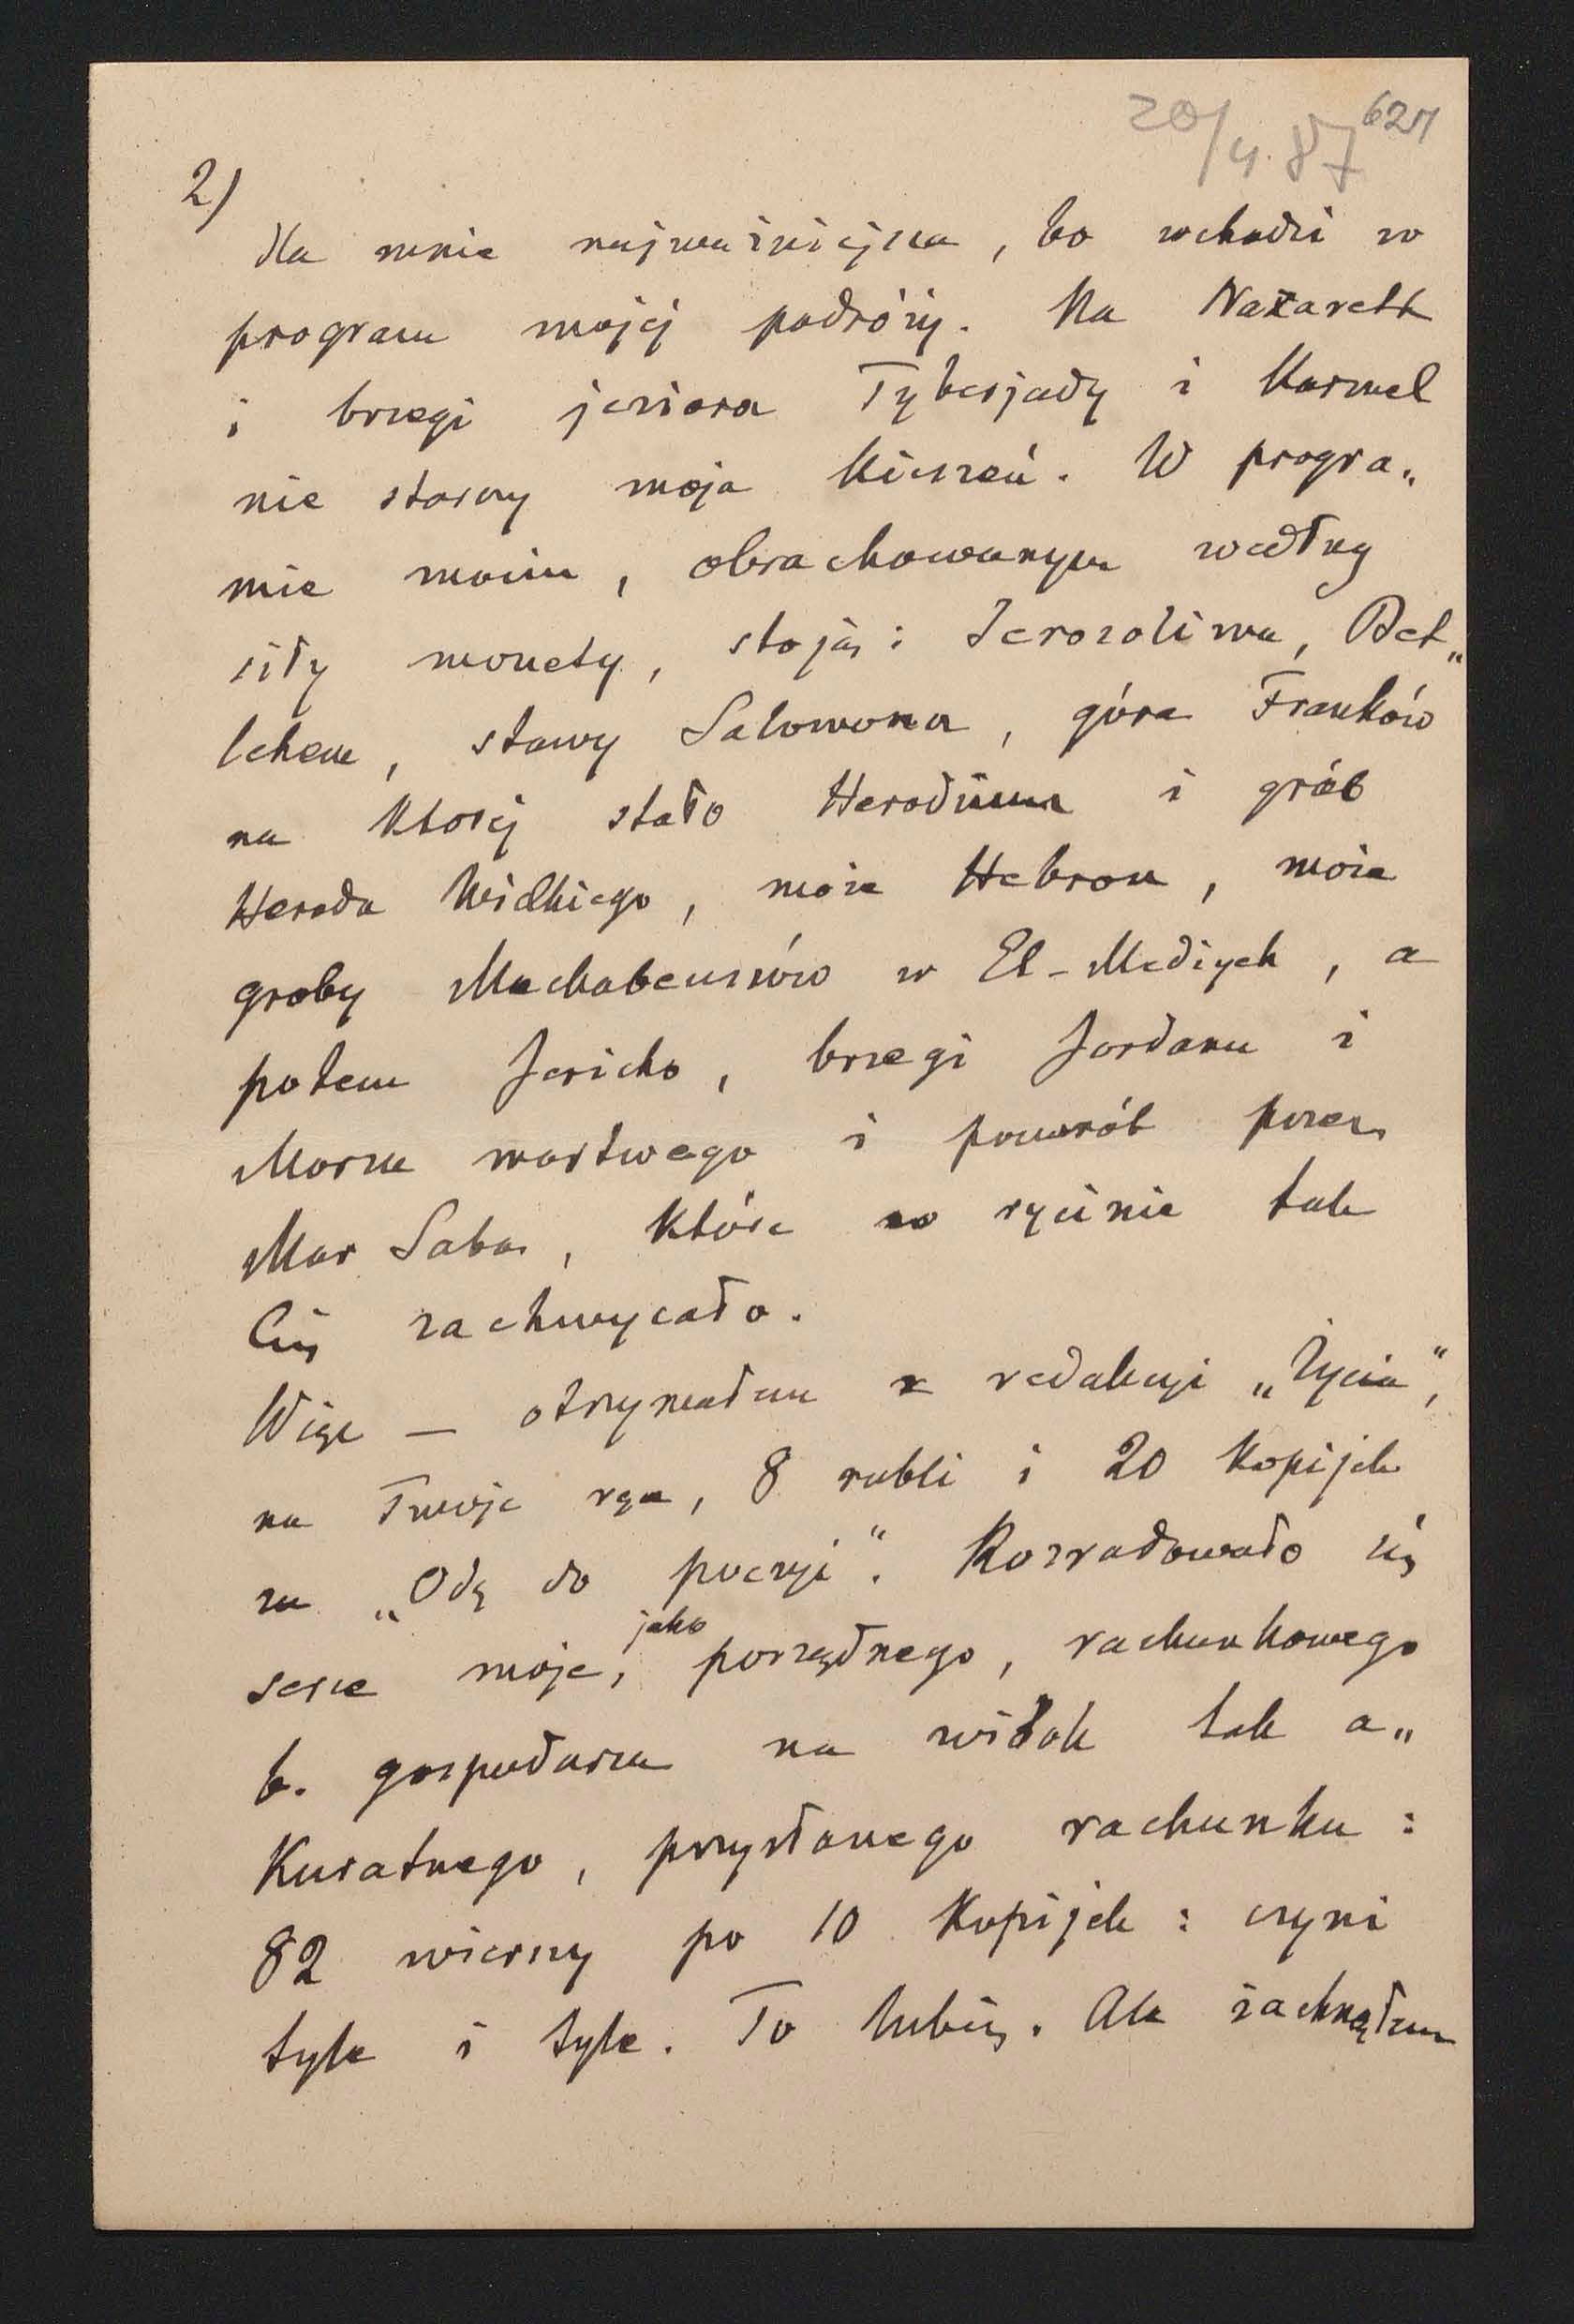 20/4. 87 627
2)
dla mnie najważniejsza, bo wchodzi w
program mojej podróży. Na Nazareth
i brzegi jeziora Tyberjady i Karmel
nie starczy moja kieszeń. W progra„
mie moim, obrachowanym według
siły monety, stoją: Jerozolima, Bet„
lehem, stawy Salomona, góra Franków
na której stało Herodium i grób
Heroda Wielkiego, może Hebron, może
groby Machabeuszów w El-Mediyeh, a
potem Jericho, brzegi Jordanu i
Morza martwego i powrót przez
Mar Saba, które w rycinie tak
Cię zachwycało.
Więc — otrzymałem z redakcji „Życia",
na Twoje ręce, 8 rubli i 20 kopijek
za „Odę do poezji". Rozradowało się
jako
serce moje, porządnego, rachunkowego
b. gospodarza na widok tak a„
kuratnego, przysłanego rachunku:
82 wierszy po 10 kopijek: czyni
tyle i tyle. To lubię. Ale żachnąłem